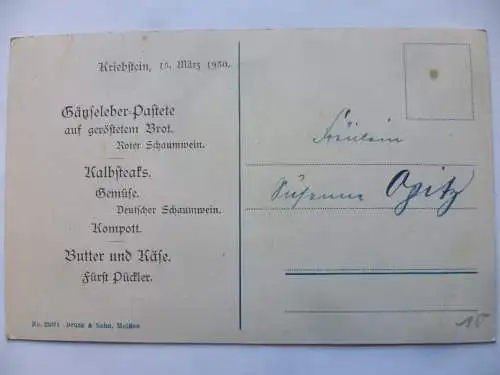 Kriebstein, 15. März 1930.
Gänseleber-Pastete
auf geröstetem Brot.
Roter Schaumwein.
Kalbsteaks.
Gemüse.
Deutscher Schaumwein.
Kompott.
Butter und Käse.
Fürst Pückler.
Brück & Sohn, Meißen
Fräulein
Susanne Opitz
15